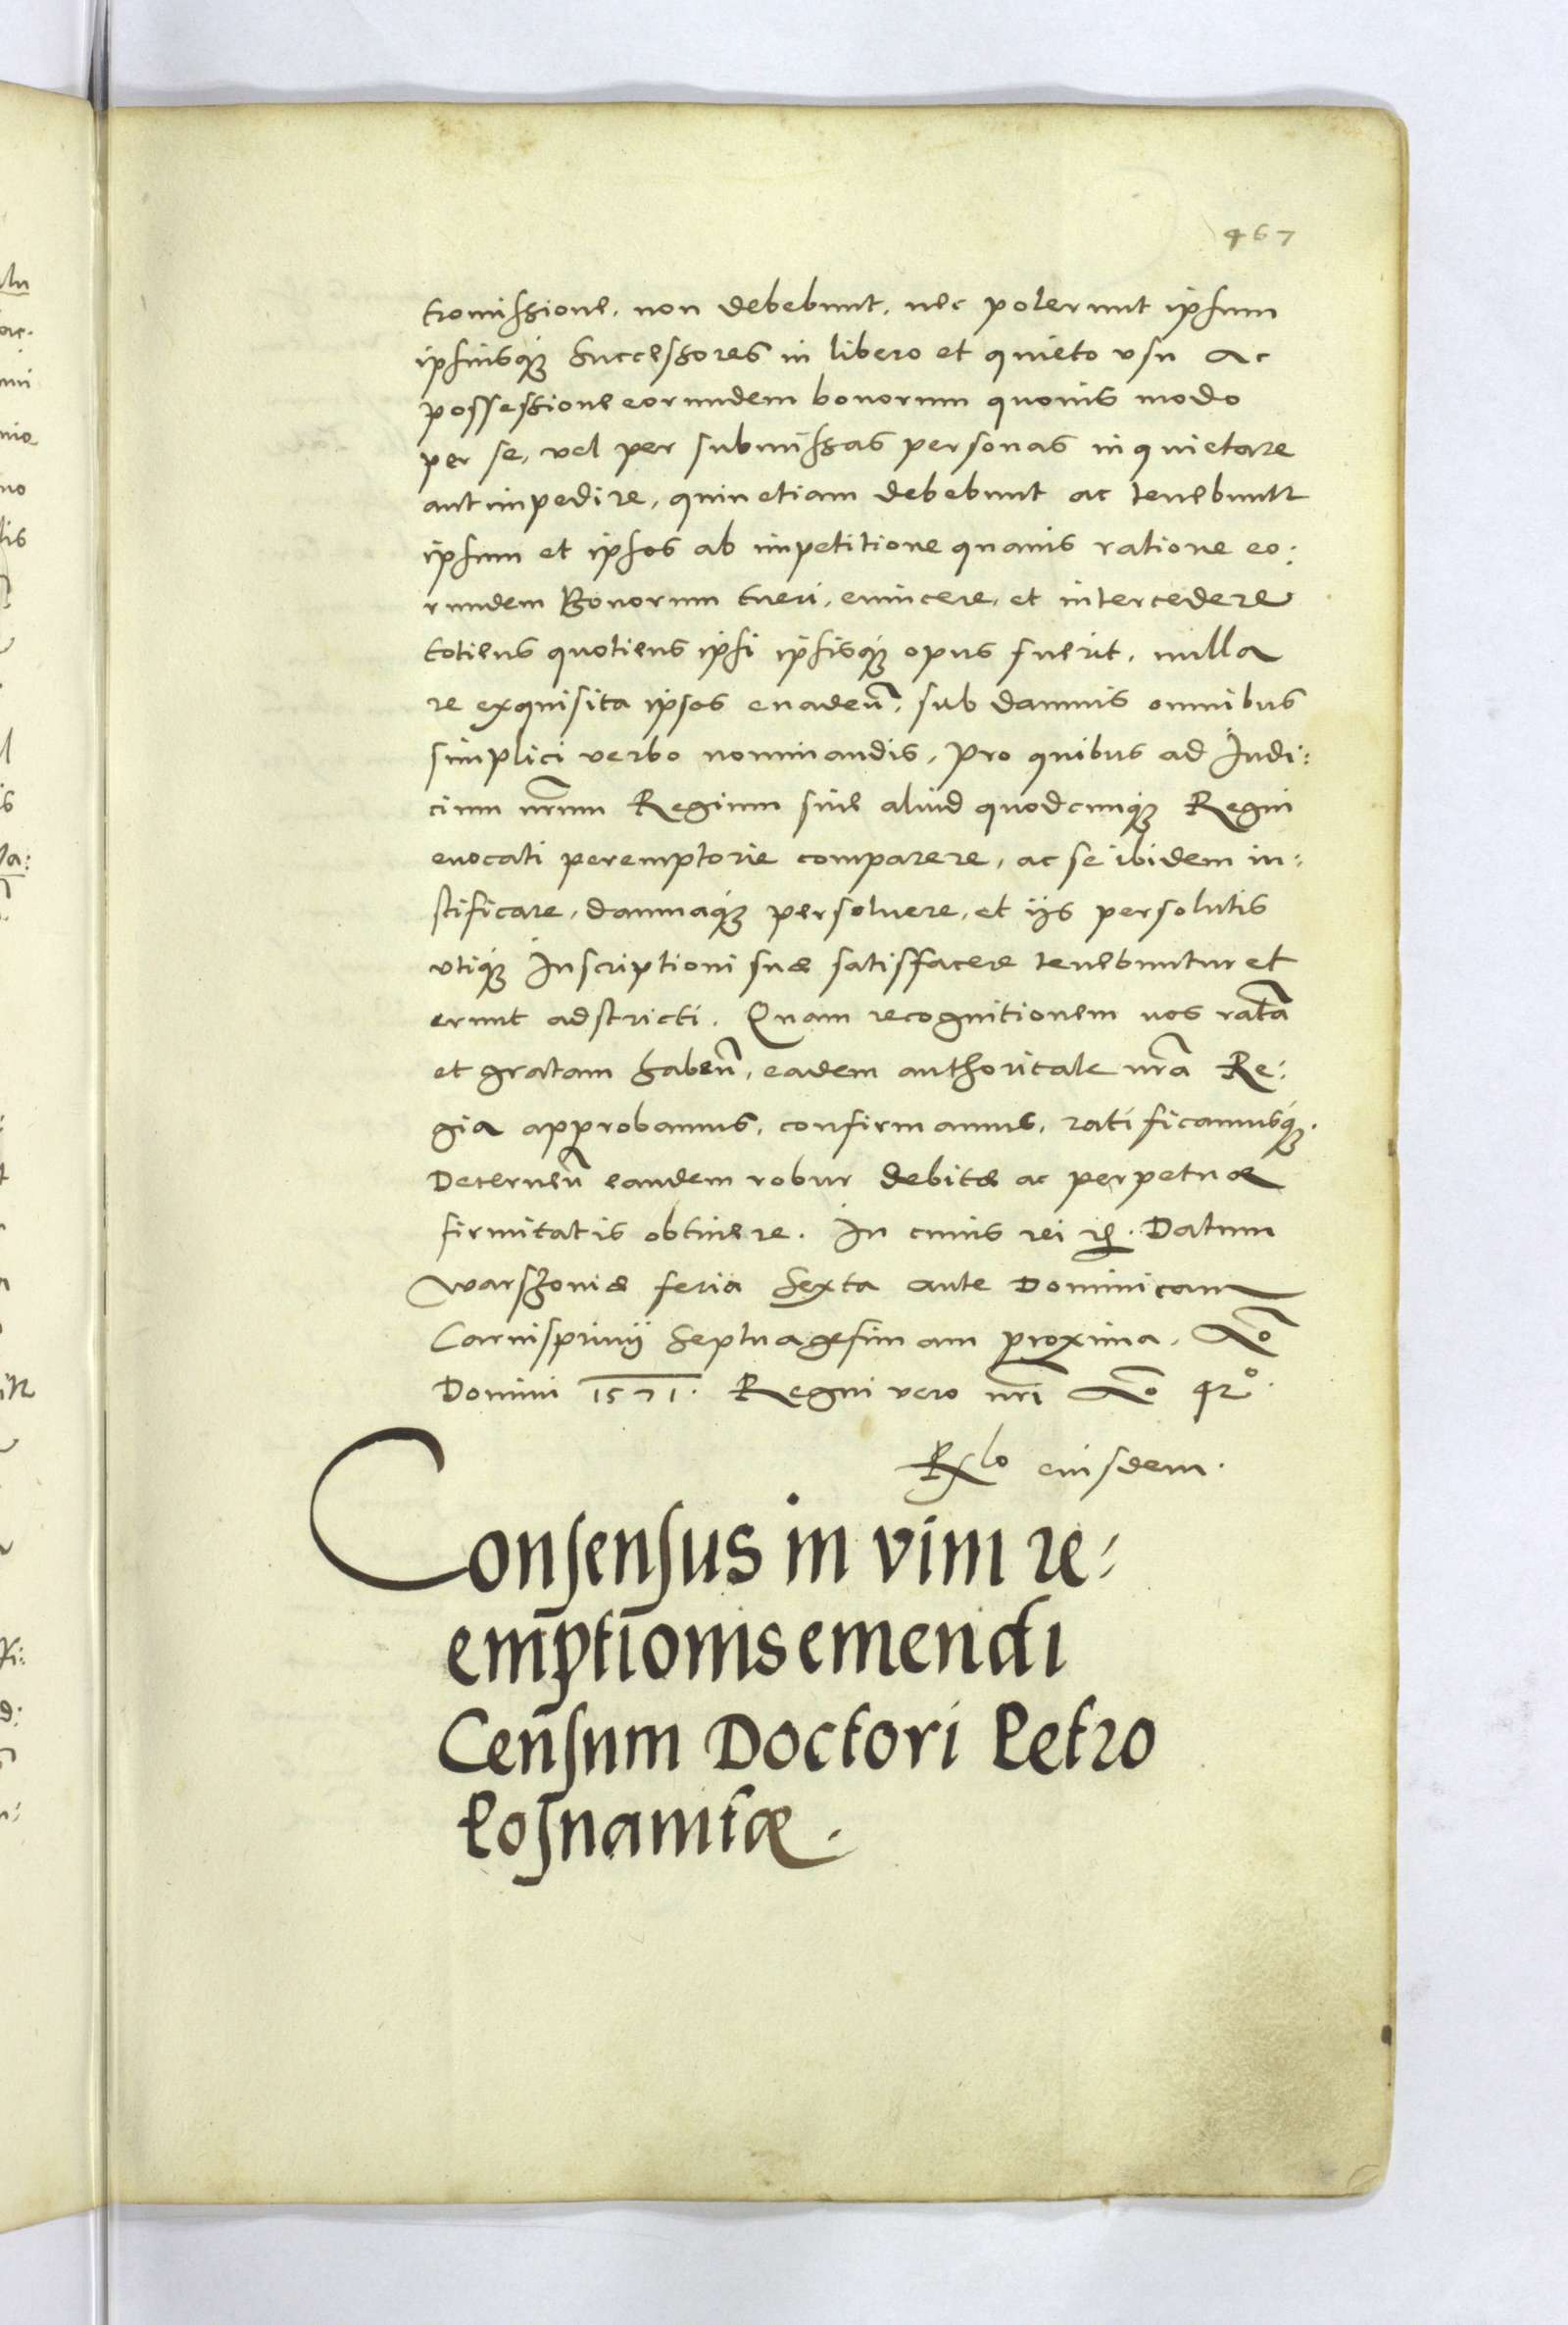 467
tromissione, non debebunt, nec poterunt ipsum
ipsiusq; Successores in libero et quieto vsu ac
possessione eorundem bonorum quouis modo
per se, vel per submissas personas inquietare
aut impedire, quin etiam debebunt ac tenebuntr
ipsum et ipsos ab impetitione quauis ratione eo:
rundem Bonorum tueri, euincere, et intercedere
totiens quotiens ipsi ipsisq; opus fuerit, nulla
re exquisita ipsos euadeñ, sub damnis omnibus
simplici verbo nominandis, Pro quibus ad Iudi:
cium nr̃um Regium siue aliud quodcunq; Regni
euocati peremptorie comparere, ac se ibidem iu:
stificare, damnaq; persoluere, et ijs persolutis
vtiq; Inscriptioni suæ satisfacere tenebuntur et
erunt adstricti. Quam recognitionem nos ratã
et gratam habeñ, eadem authoritate nr̃a Re:
gia approbamus, confirmamus, ratificamusq;.
Decerneñ eandem robur debitæ ac perpetuæ
firmitatis obtinere. In cuius rei . Datum
Warszouiæ feria Sexta ante Dominicam
Carnispriuij Septuagesimam proxima. Ao
Domini 1571. Regni vero nr̃i Ao 42o.
Rlo eiusdem.
Consensus in vim re:
emptionis emendi
Censum Doctori Petro
Posnanitæ.